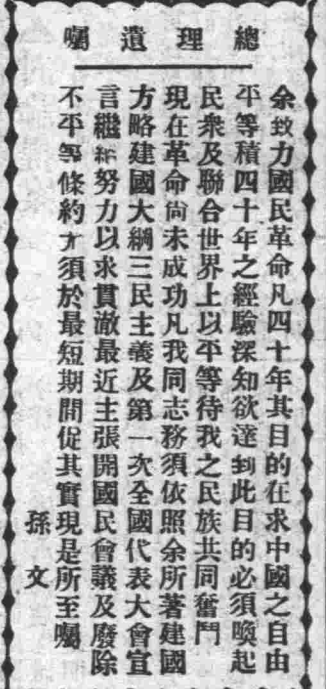 總理遺囑
余致力國民革命凡四十年其目的在求中國之自由
平等積四十年之經驗深知欲達到此目的必須喚起
民衆及聯合世界上以平等待我之民族共同奮鬥
現在革命尙未成功凡我同志務須依照余所著建國
方略建國大綱三民主義及第一次全國代表大會宣
言繼續努力以求貫澈最近主張開國民會議及廢除
不平等條約尤須於最短期間促其實現是所至囑
孫文